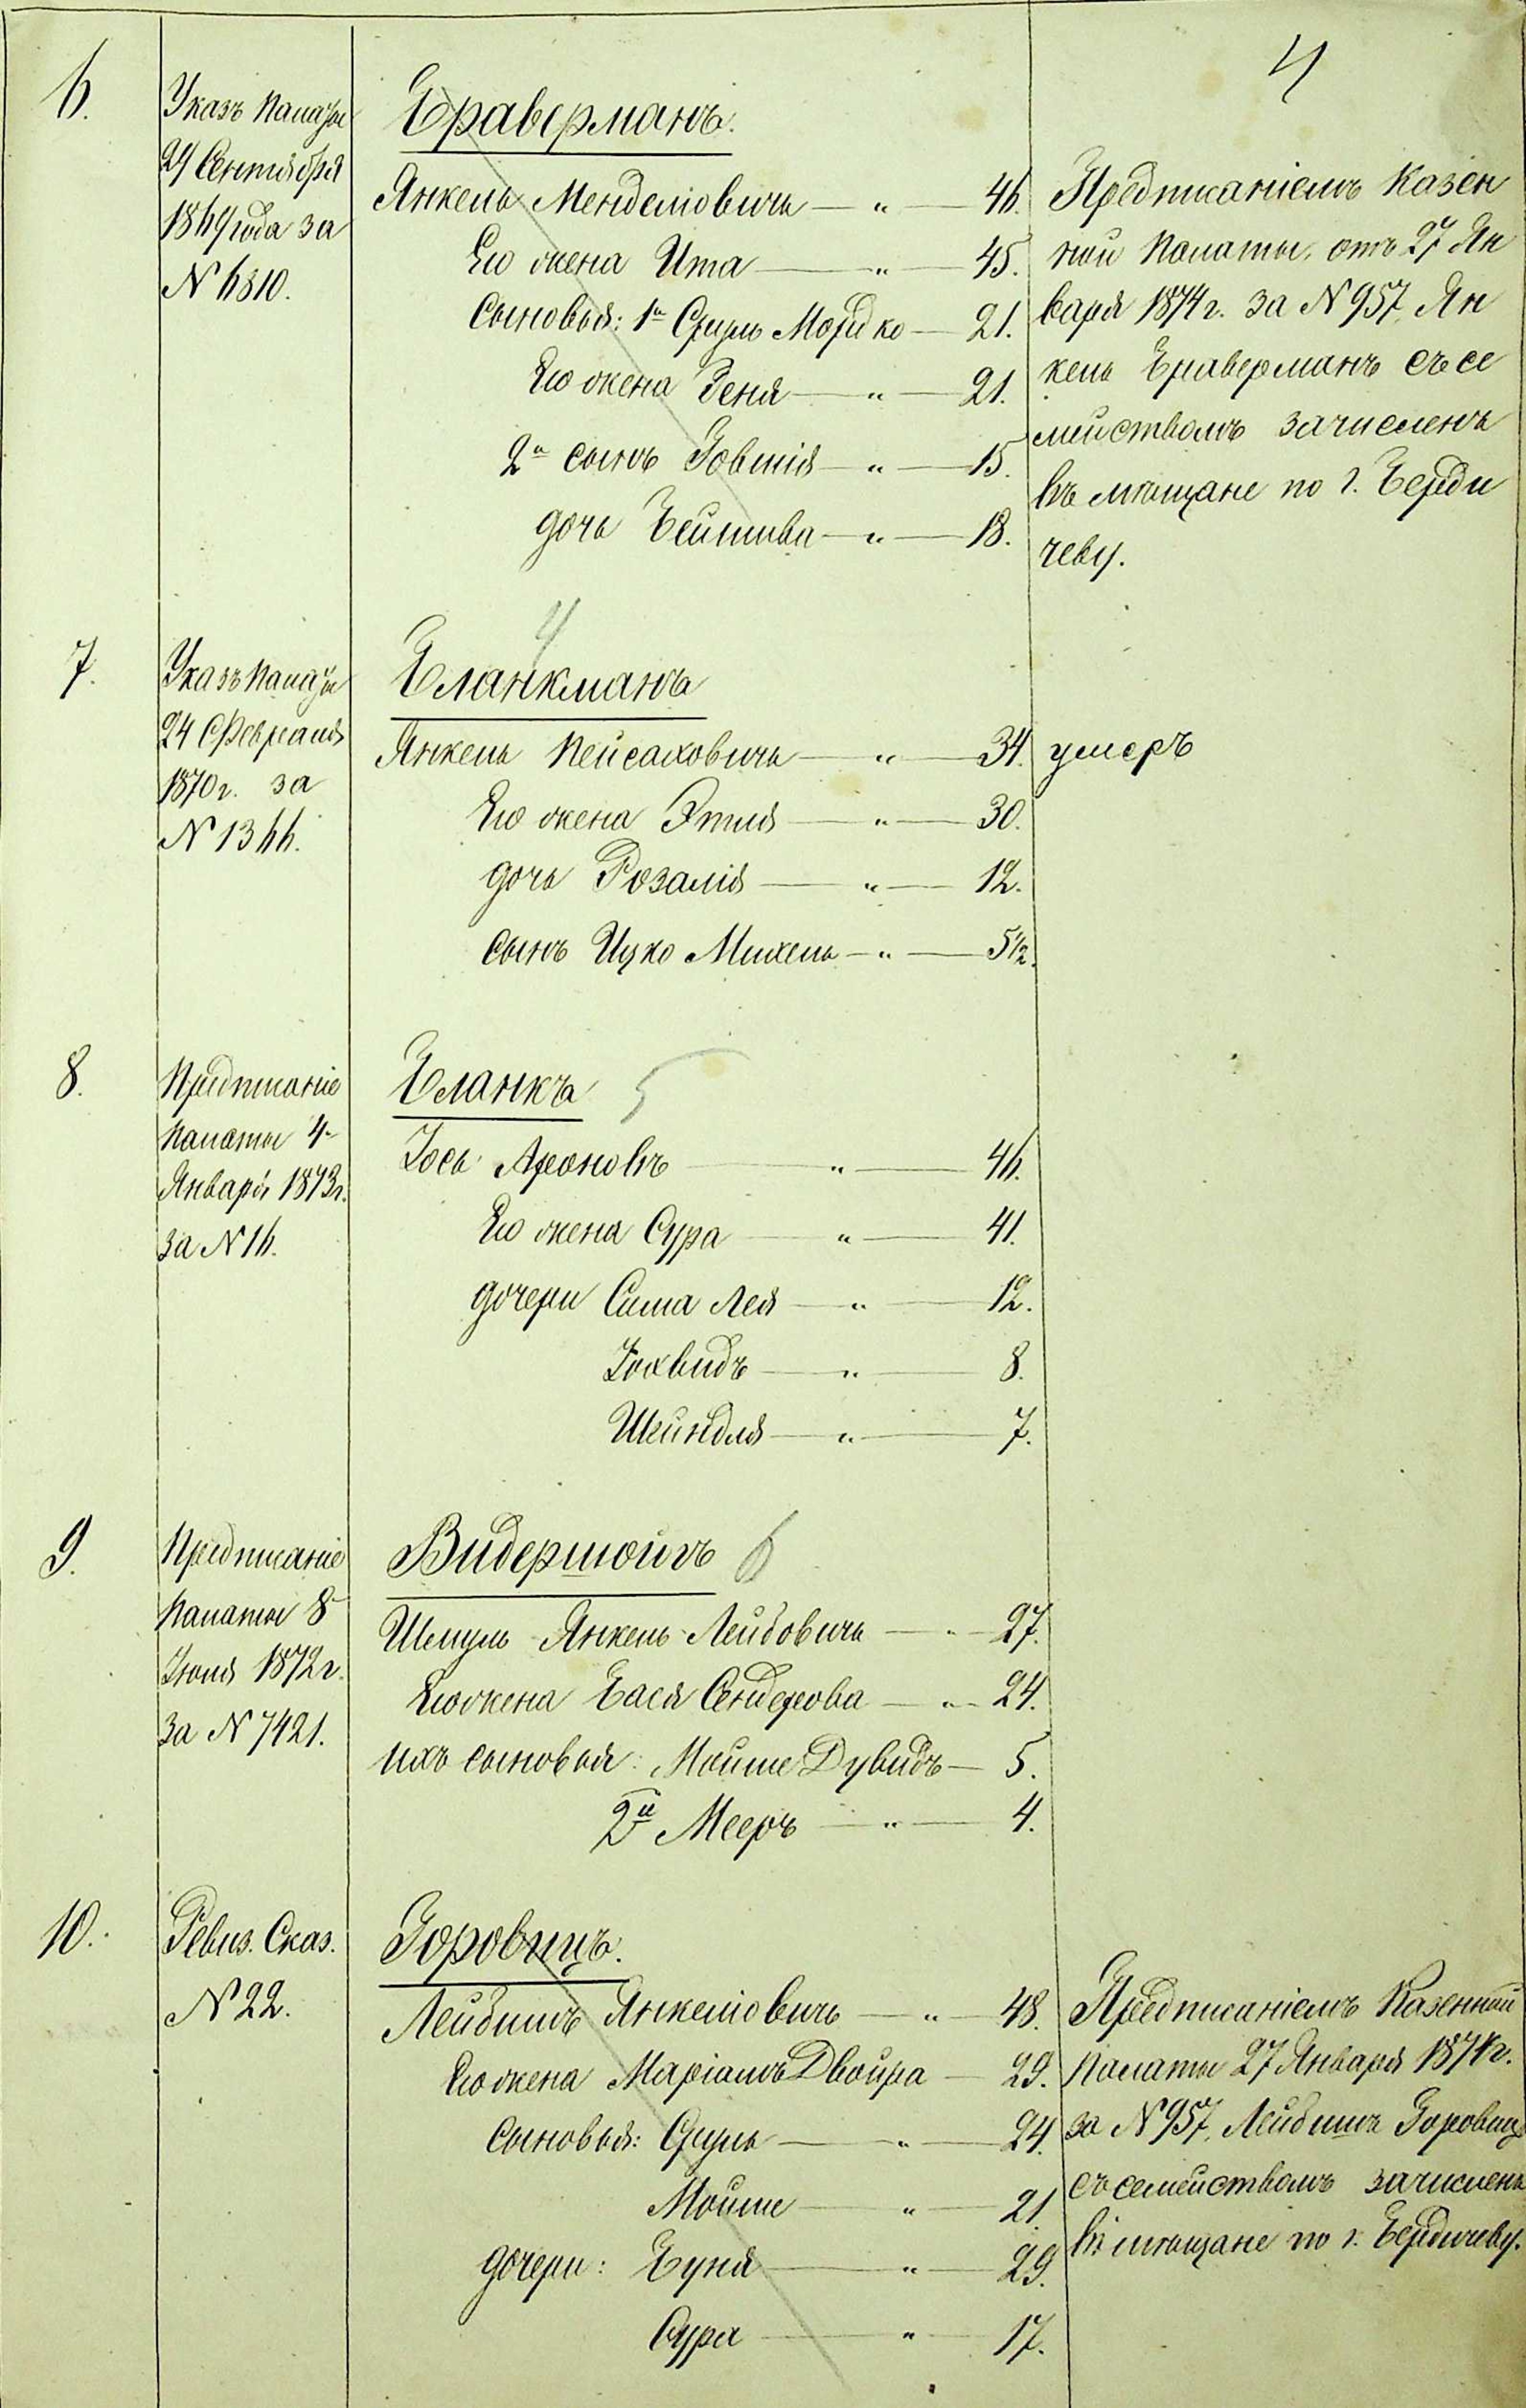 4
6.
Указъ Палаты
29 Сентября
1869 года за
N 6810.
Браверманъ.
Янкель Менделіовичъ — " — 46.
Его жена Ита — " — 45.
Сыновья: 1й Сруль Мордко — 21.
Его жена Геня — " — 21.
2й сынъ Говшія — " — 15.
дочь Бейшива — " — 18.
Предписаніемъ Казен
ной Палаты, отъ 27 Ян
варя 1874 г. за N 957 Ян
кель Браверманъ съ се
мействомъ зачисленъ
въ мѣщане по г. Берди
чеву.
7.
Указъ Палаты
24 Февраля
1870 г. за
N 1366.
4
Бланкманъ
Янкель Пейсаховичъ — " — 34.
Его жена Этля — " — 30.
дочь Розалія — " — 12.
сынъ Ицко Михель — " — 5½.
умеръ
8.
Предписаніе
Палаты 4
Января 1873 г.
за N 16.
Бланкъ 5
Іось Ароновъ — " — 46.
Его жена Сура — " — 41.
дочери Сима Лея — " — 12.
Іохвидъ — " — 8.
Шейндля — " — 7.
9.
Предписаніе
Палаты 8
Іюня 1872 г.
за N 7421.
Видершойнъ 6
Шмуль Янкель Лейбовичъ — " — 27.
Его жена Бася Сендерова — " — 24.
ихъ сыновья: Мойше Дувидъ — 5.
2й Мееръ — " — 4.
10.
Ревиз. Сказ.
N 22.
Горовицъ.
Лейбишъ Янкеліовичъ — " — 48.
Его жена Маріамъ Двойра — 29.
Сыновья: Сруль — " — 24.
Мойше — " — 21
дочери: Буня — " — 29.
Сура — " — 17.
Предписаніемъ Казенной
Палаты 27 Января 1874 г.
за N 957, Лейбишъ Горовицъ
съ семействомъ зачисленъ
въ мѣщане по г. Бердичеву.